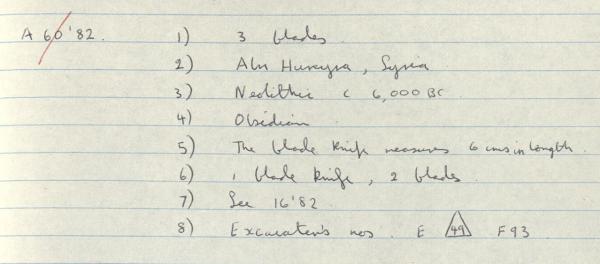 A 60'82. 1) 3 blades.
2) Abu Hureyra, Syria
3) Neolithic c 6,000 BC.
4) Obsidian
5) The blade knife measures 6 cms in length.
6) 1 blade knife, 2 blades.
7) See 16'82
8) Excavator's nos. E 49 F93